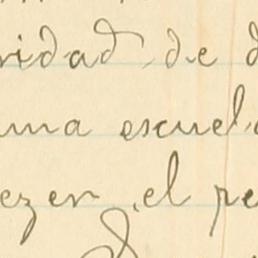 ridad, de d
una escuela
ezer, el pe